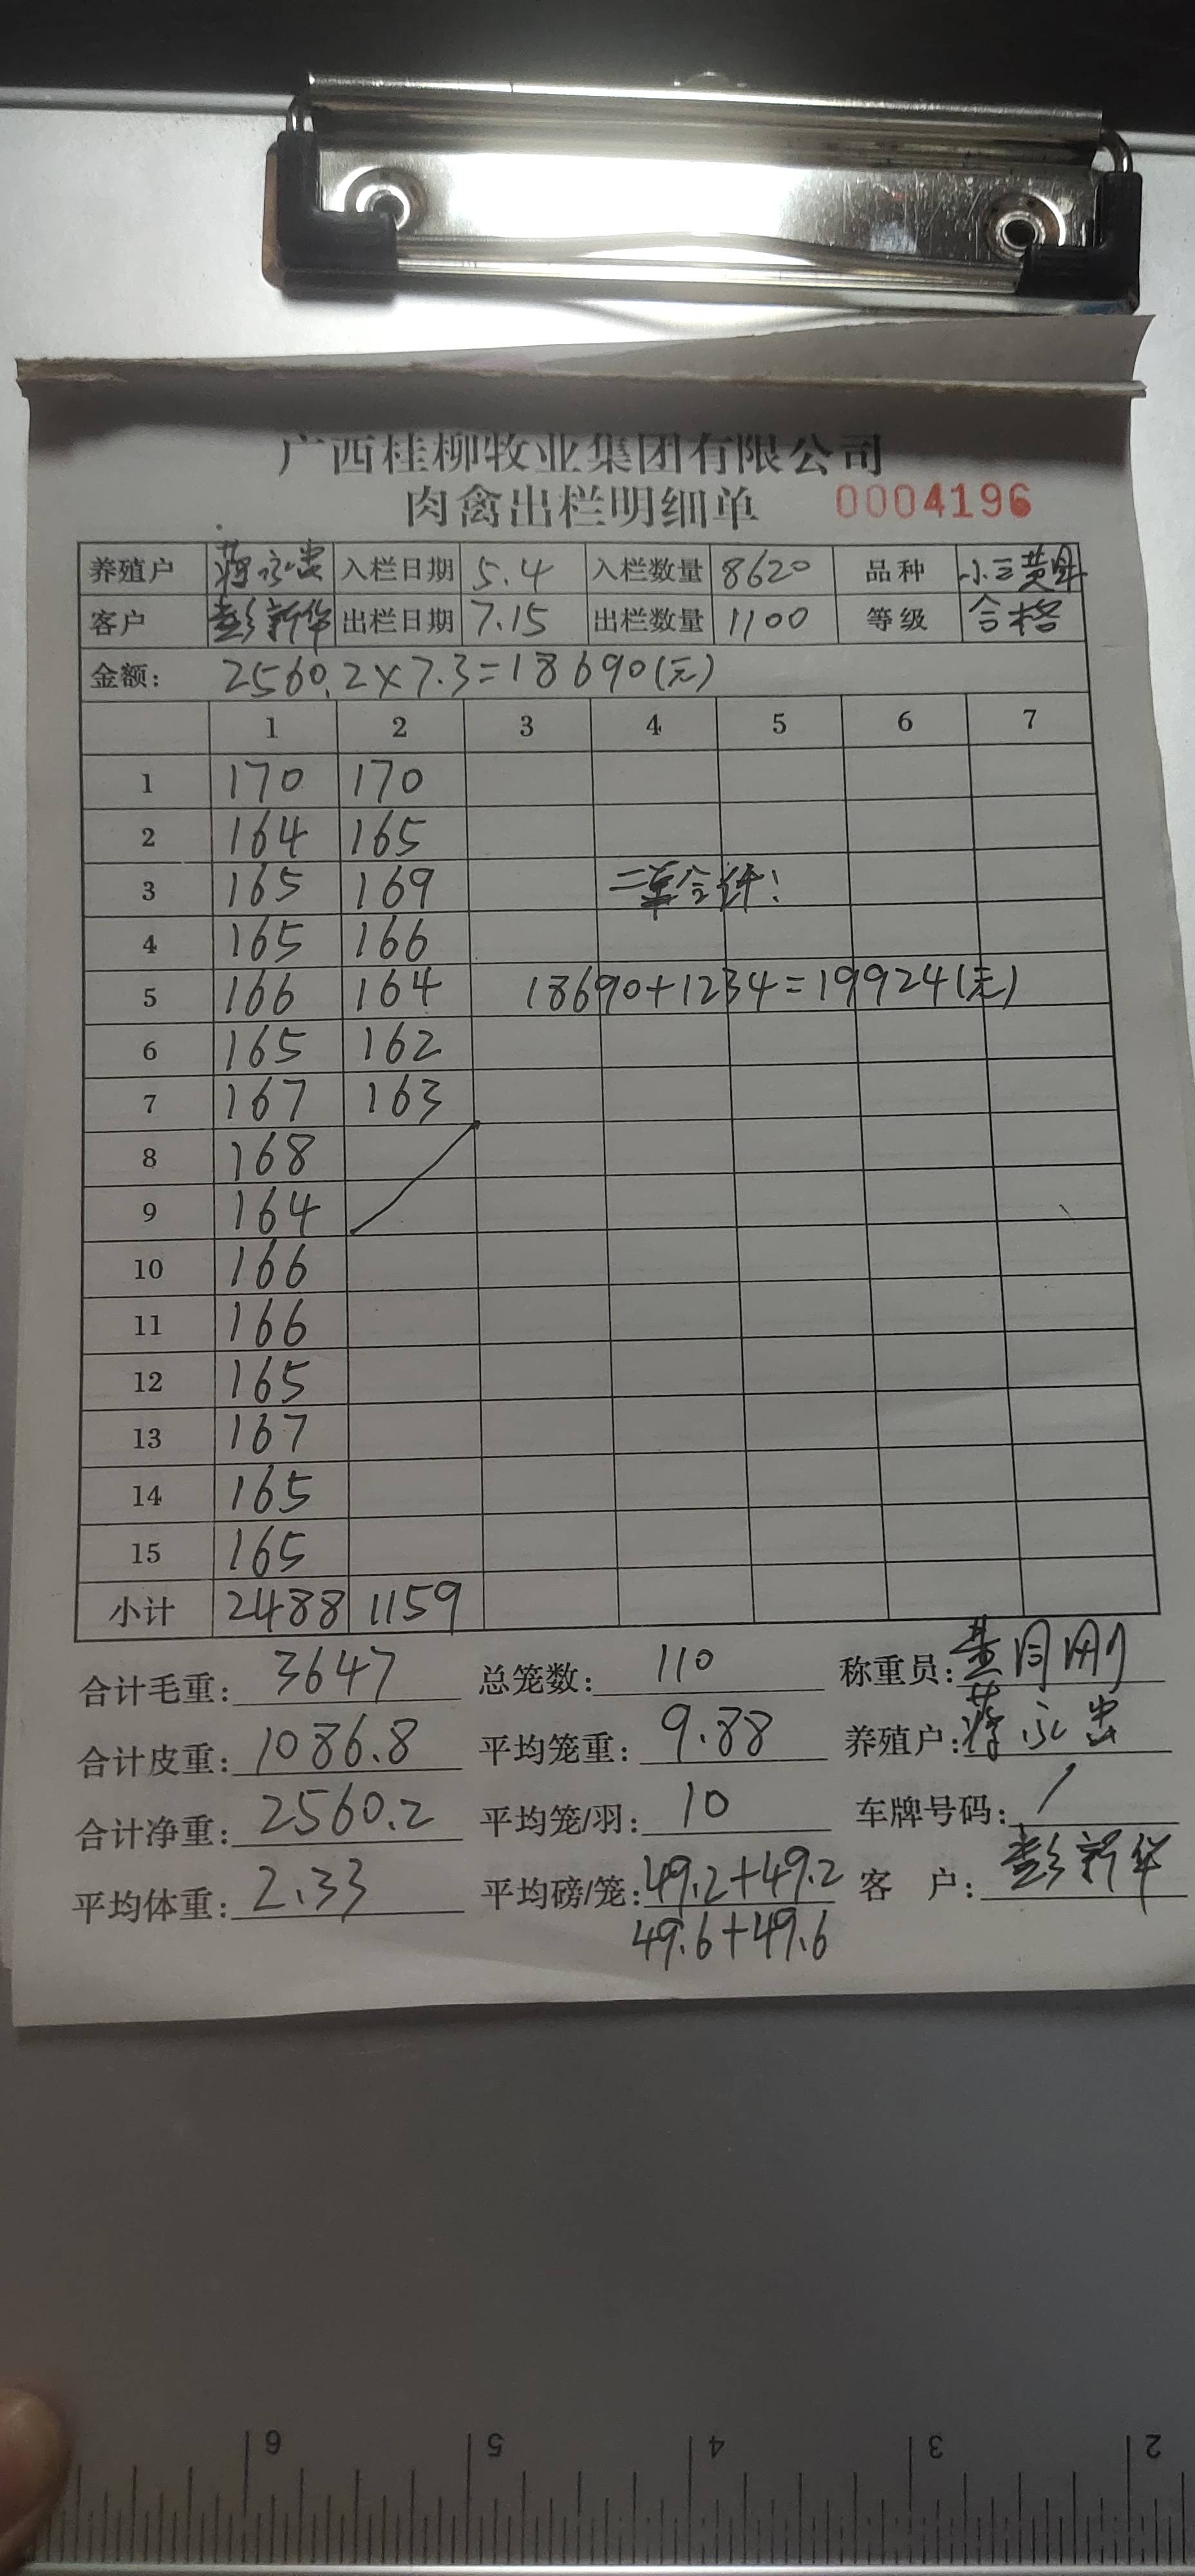 广西桂柳牧业集团有限公司
肉禽出栏明细单 0004196
养殖户 蒋永忠 入栏日期 5.4 入栏数量 8620 品种 小三黄
客户 彭新华 出栏日期 7.15 出栏数量 1100 等级 合格
金额: 2560.2×7.3=18690(元)
1 2 3 4 5 6 7
1 170 170
2 164 165
3 165 169 二单合计:
4 165 166
5 166 164 18690+1234=19924(元)
6 165 162
7 167 163
8 168
9 164
10 166
11 166
12 165
13 167
14 165
15 165
小计 2488 1159
合计毛重: 3647 总笼数: 110 称重员:
合计皮重: 1086.8 平均笼重: 9.88 养殖户: 蒋永忠
合计净重: 2560.2 平均笼/羽: 10 车牌号码: /
平均体重: 2.33 平均磅/笼: 49.2+49.2 客 户: 彭新华
49.6+49.6
6 5 4 3 2